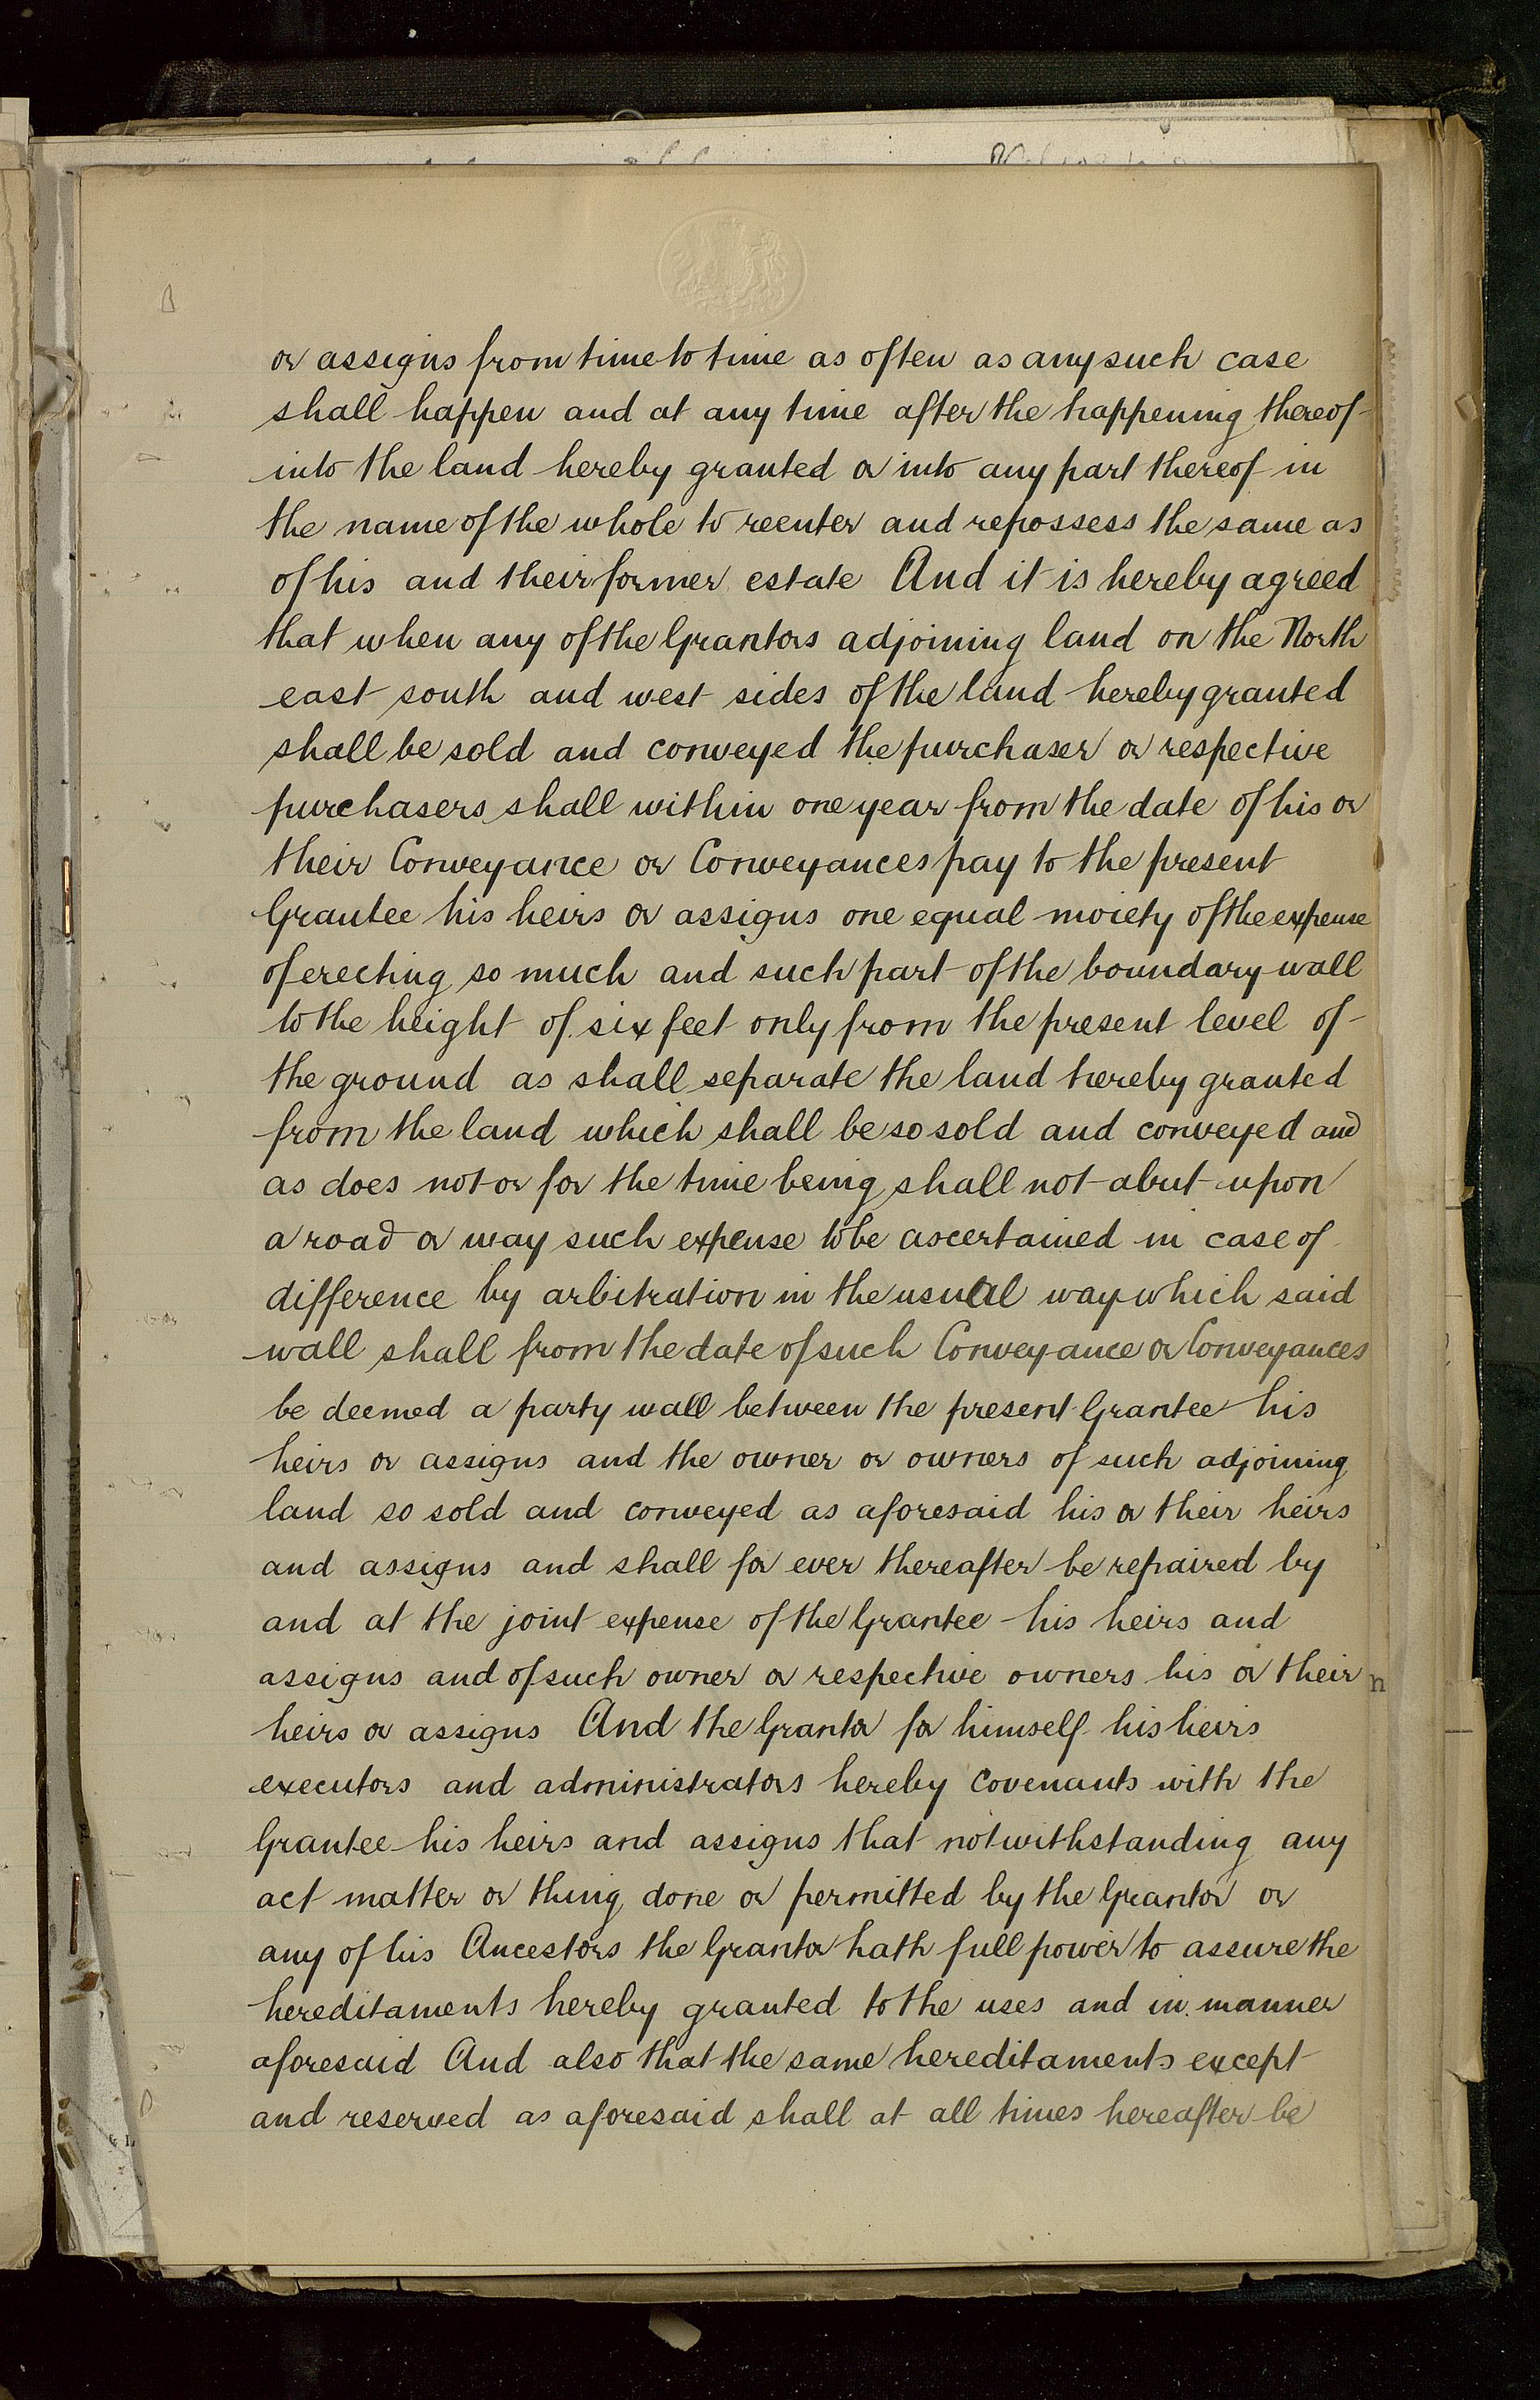 or assigns from time to time as often as any such case
shall happen and at any time after the happening thereof
into the land hereby granted or into any part thereof in
the name of the whole to reenter and repossess the same as
of his and their former estate And it is hereby agreed
that when any of the Grantors adjoining land on the North
east south and west sides of the land hereby granted
shall be sold and conveyed the purchaser or respective
purchasers shall within one year from the date of his or
their Conveyance or Conveyances pay to the present
Grantee his heirs or assigns one equal moiety of the expense
of erecting so much and such part of the boundary wall
to the height of six feet only from the present level of
the ground as shall separate the land hereby granted
from the land which shall be so sold and conveyed and
as does not or for the time being shall not abut upon
a road or way such expense to be ascertained in case of
difference by arbitration in the usual way which said
wall shall from the date of such Conveyance or Conveyances
be deemed a party wall between the present Grantee his
heirs or assigns and the owner or owners of such adjoining
land so sold and conveyed as aforesaid his or their heirs
and assigns and shall for ever thereafter be repaired by
and at the joint expense of the Grantee his heirs and
assigns and of such owner or respective owners his or their
heirs or assigns And the Grantor for himself his heirs
executors and administrators hereby covenants with the
Grantee his heirs and assigns that notwithstanding any
act matter or thing done or permitted by the Grantor or
any of his Ancestors the Grantor hath full power to assure the
hereditaments hereby granted to the uses and in manner
aforesaid And also that the same hereditaments except
and reserved as aforesaid shall at all times hereafter be